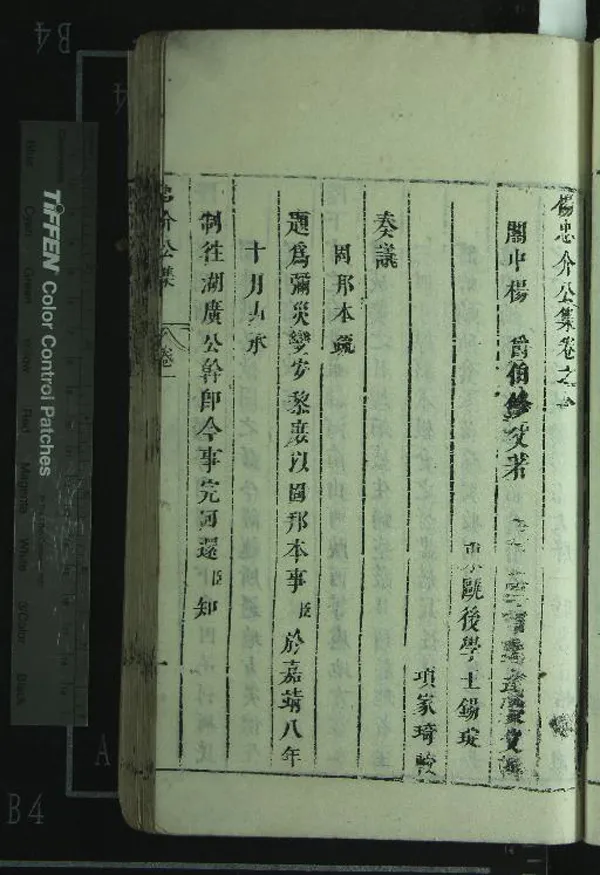 楊忠介公集卷之
關中楊 爵伯修父著
東甌後學王錫琔
項家琦校
奏議
固邦本疏
題爲彌災變安黎庶以固邦本事臣於嘉靖八年
十月內承
制往湖廣公幹即今事完河還臣知
忠介公集
卷一
TIFFEN Color Control Patches
Blue
Cyan
Green
Yellow
Red
Magenta
White
3/Color
Black
B4
A
B4